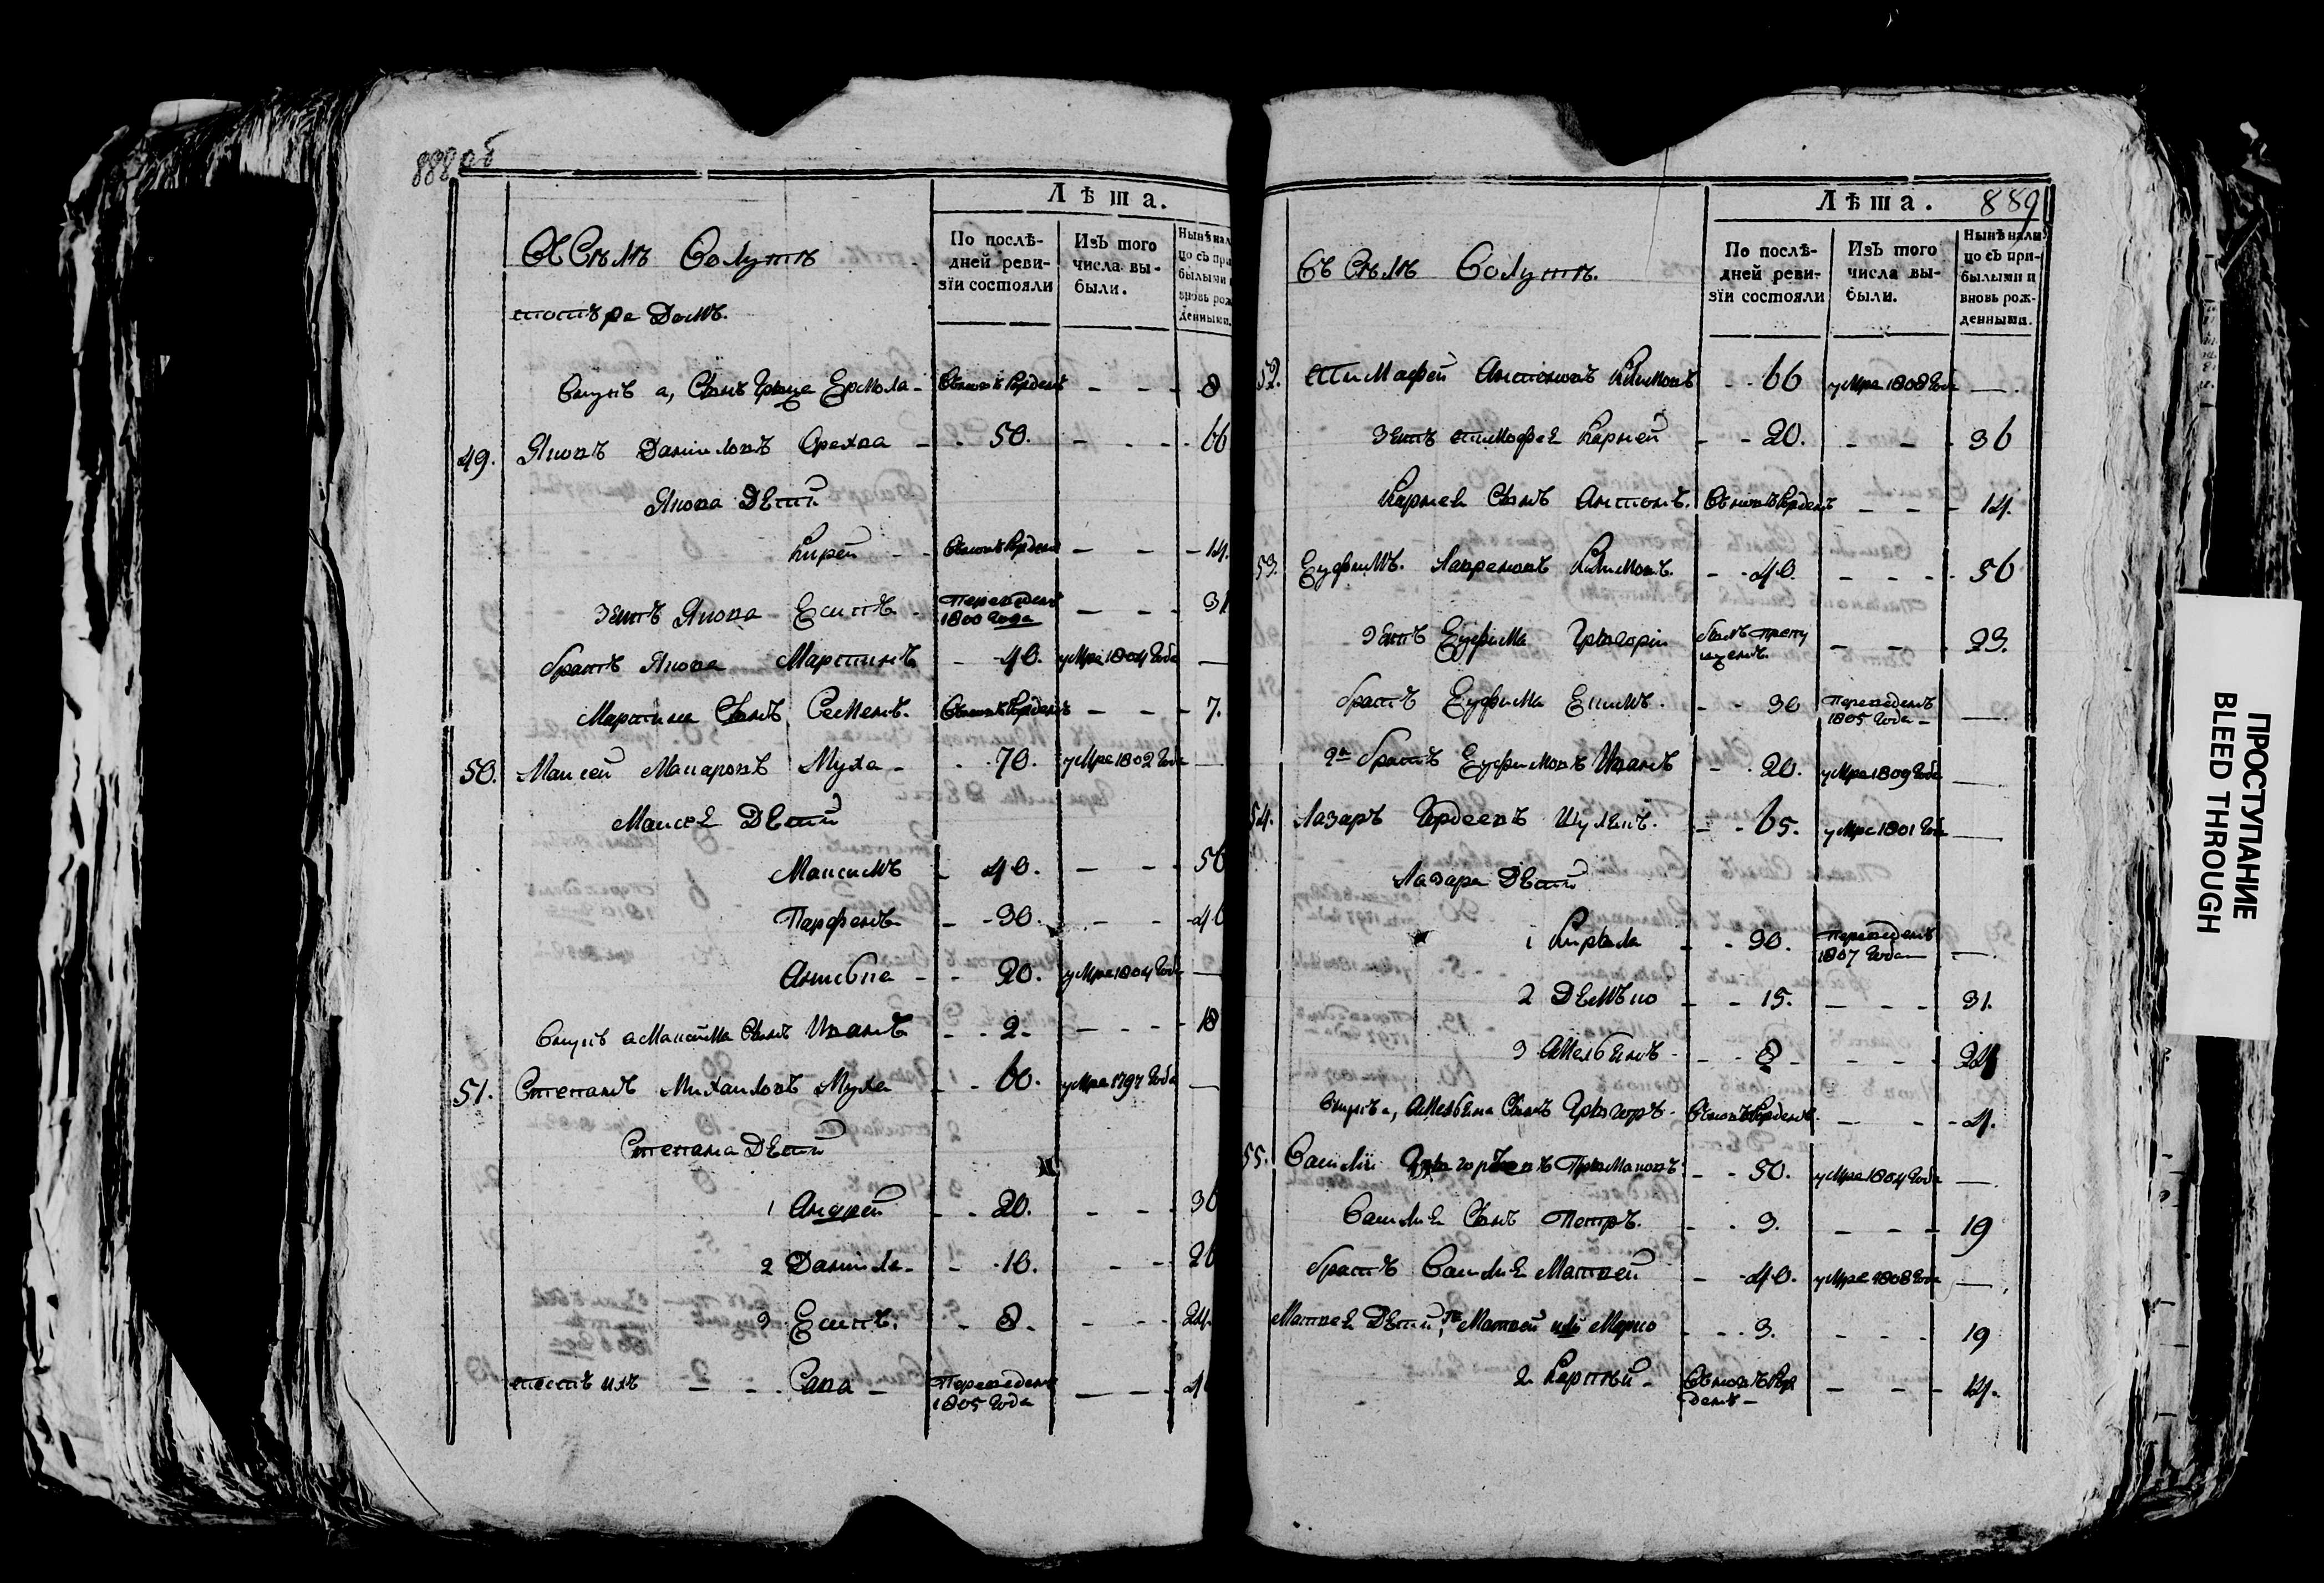 888 об
Лѣта.
По послѣ-
дней реви-
зїи состояли
Изъ того
числа вы-
были.
Нынѣ нали
цо съ при
былыми и
вновь рож
денными.
въ Селѣ
тоитъ ре Домъ.
внукъ а, Сынъ Ермола - - - - 8
49. Яковъ Даниловъ Орехва - - 50. - - - 66
Якова Дети
Кирей - - - - - 14.
зетъ Якова Есипъ - Переведенъ 1800 Года - - - 31
братъ Якова Мартинъ - - 40. умре 1804 Года —
Мартина Сынъ Семенъ. вновь Рожденъ - - - 7.
50. Моисей Макаровъ Муха - - 70. умре 1802 Года —
Моисея Дети
Максимъ - 40. - - - 56
Парфенъ - - 30. - - - 46
- - 20. умре 1804 Года —
внукъ а Максима Сынъ Иванъ - - 2 - - - - 18
51. Степанъ Михаиловъ Муха - - 60. умре 1797 Года —
Степана Дети
1 Андрей - - 20. - - - 36
2 Данила - - 10. - - - 26
3 Есипъ. - 8. - - - 24.
- - Сава - Переведенъ 1805 Года - - -
889
Лѣта.
По послѣ-
дней реви-
зїи состояли
Изъ того
числа вы-
были.
Нынѣ нали
цо съ при-
былыми и
вновь рож-
денными.
въ Селѣ
52. Тимофей Антоновъ Климовъ - - 66 умре 1808 Года —
зетъ Тимофея Карней - - 20. - - - 36
Карнея Сынъ Антонъ. вновь Рожденъ - - - 14.
53. Еуфимъ. Лавреновъ Климовъ. - - 40. - - - 56
зетъ Еуфима Григорiй былъ пропу щенъ. - - - 23.
братъ Еуфима Екимъ. - - 30 Переведенъ 1805 Года - —
2й братъ Еуфимовъ Иванъ - - 20. умре 1809 Года —
54. Лазаръ Гордеевъ Шулякъ. - - 65. умре 1801 Года —
Лазаря Дети
1 Кирила - - 30. Переведенъ 1807 Года —
2 Демъко - - 15. - - - 31.
3 Амельянъ - - 8 - - - - 24
внукъ а, Амельяна Сынъ Григоръ - вновь Рожденъ - - - 4.
55. Василiй Прымаковъ - - 50. умре 1804 Года —
Василя Сынъ Петръ. - - 3. - - - 19
братъ Василя Матвей - - 40. умре 1808 Года —
Матвея Дети, 1й Матвей или Марко - - 3. - - - 19
2 Карпъ - вновь Рож денъ - - - - 14.
ПРОСТУПАНИЕ
BLEED THROUGH